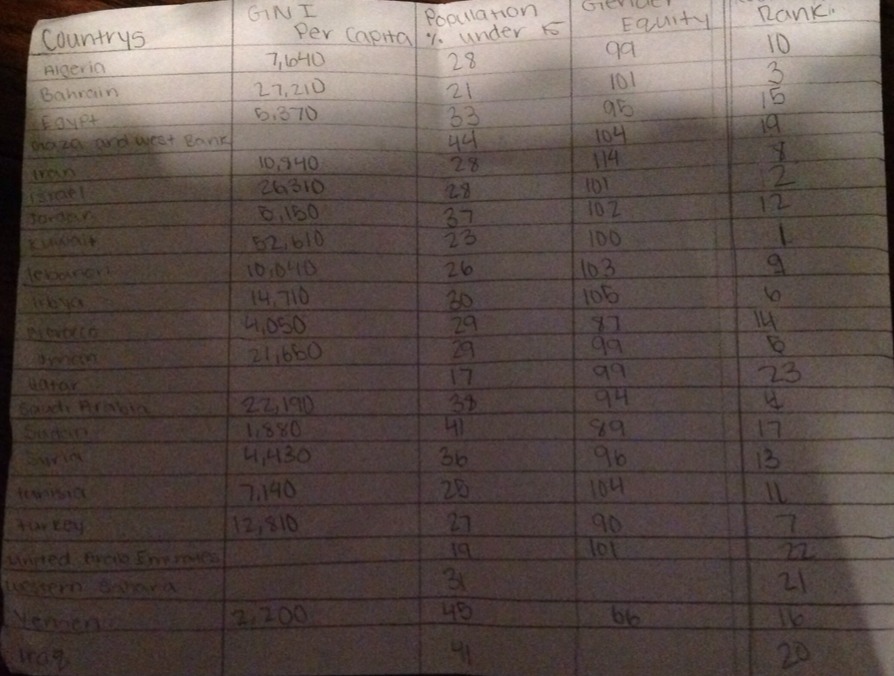 Countrys GINI Per Capita Population % under 15 Gender Equity Rank.
Algeria 7,640 28 99 10
Bahrain 27,210 21 101 3
Egypt 5,370 33 95 15
Gaza and West Bank 44 104 19
Iran 10,940 28 114 8
Israel 26310 28 101 2
Jordan 5,150 37 102 12
Kuwait 52,610 23 100 1
lebanon 10,040 26 103 9
libya 14,710 30 105 6
Morocco 4,050 29 87 14
Oman 21,650 29 99 5
Qatar 17 99 23
Saudi Arabia 22,190 38 94 4
Sudan 1,880 41 89 17
Syria 4,430 36 96 13
tunisia 7,140 25 104 11
turkey 12,810 27 90 7
United Arab Emirates 19 101 22
Western Sahara 31 21
Yemen 2,200 45 66 16
Iraq 41 20